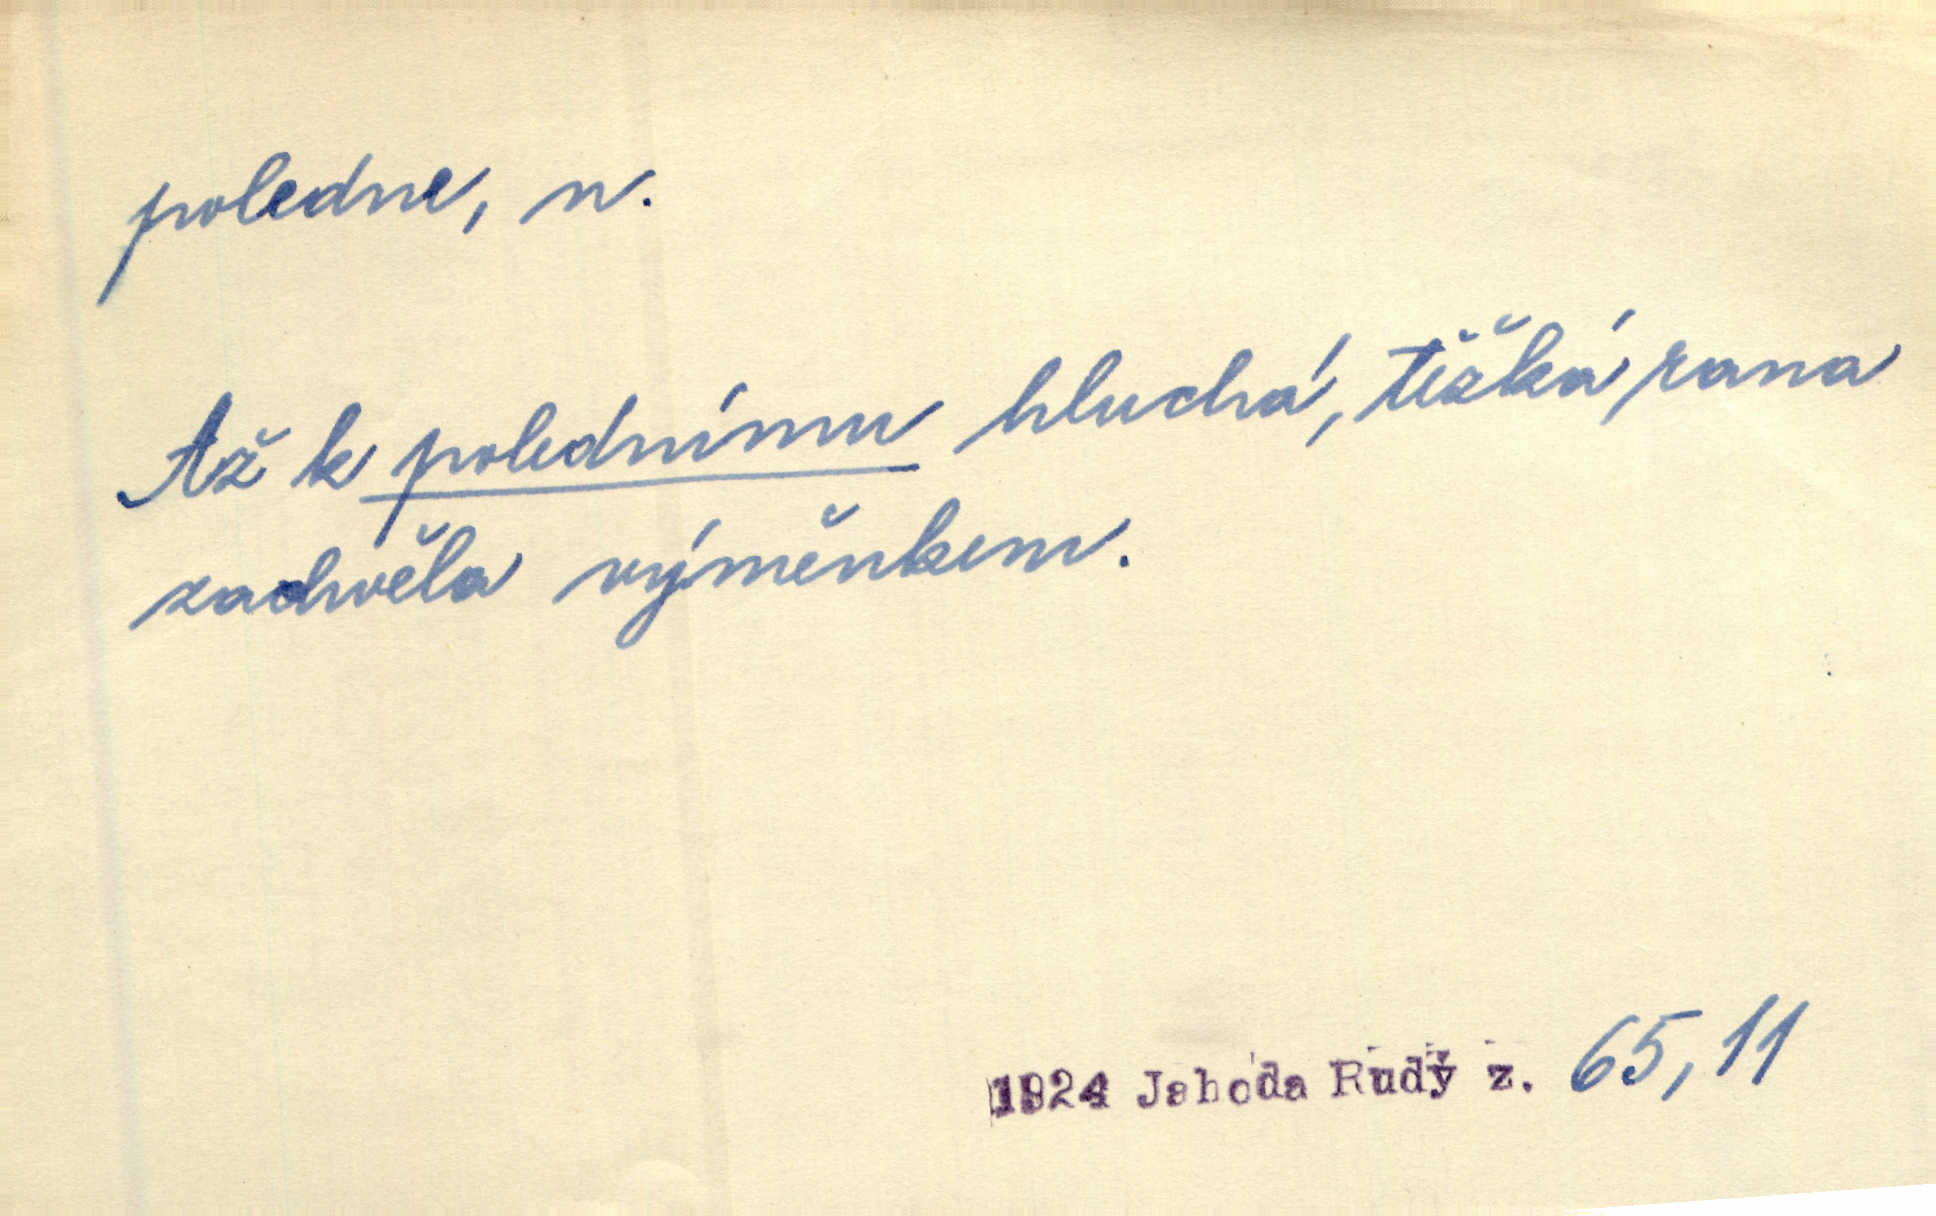 poledne, n.
Až k polednímu hluchá, těžká rana
zachvěla výměnkem.
1924 Jahoda Rudý z. 65,11